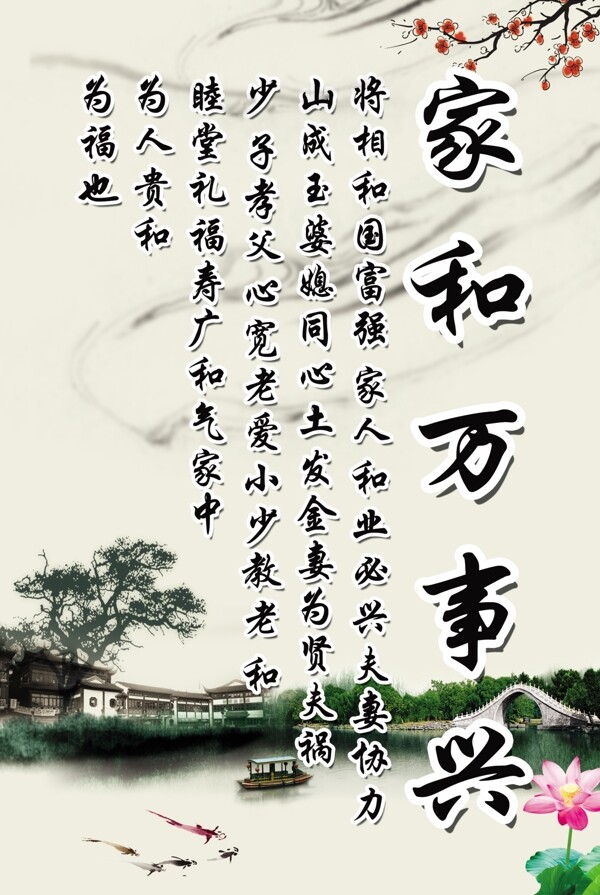 家和万事兴
将相和国富强家人和业必兴夫妻协力
山成玉婆媳同心土发金妻为贤夫祸
少子孝父心宽老爱小少教老和
睦堂礼福寿广和气家中
为人贵和
为福也